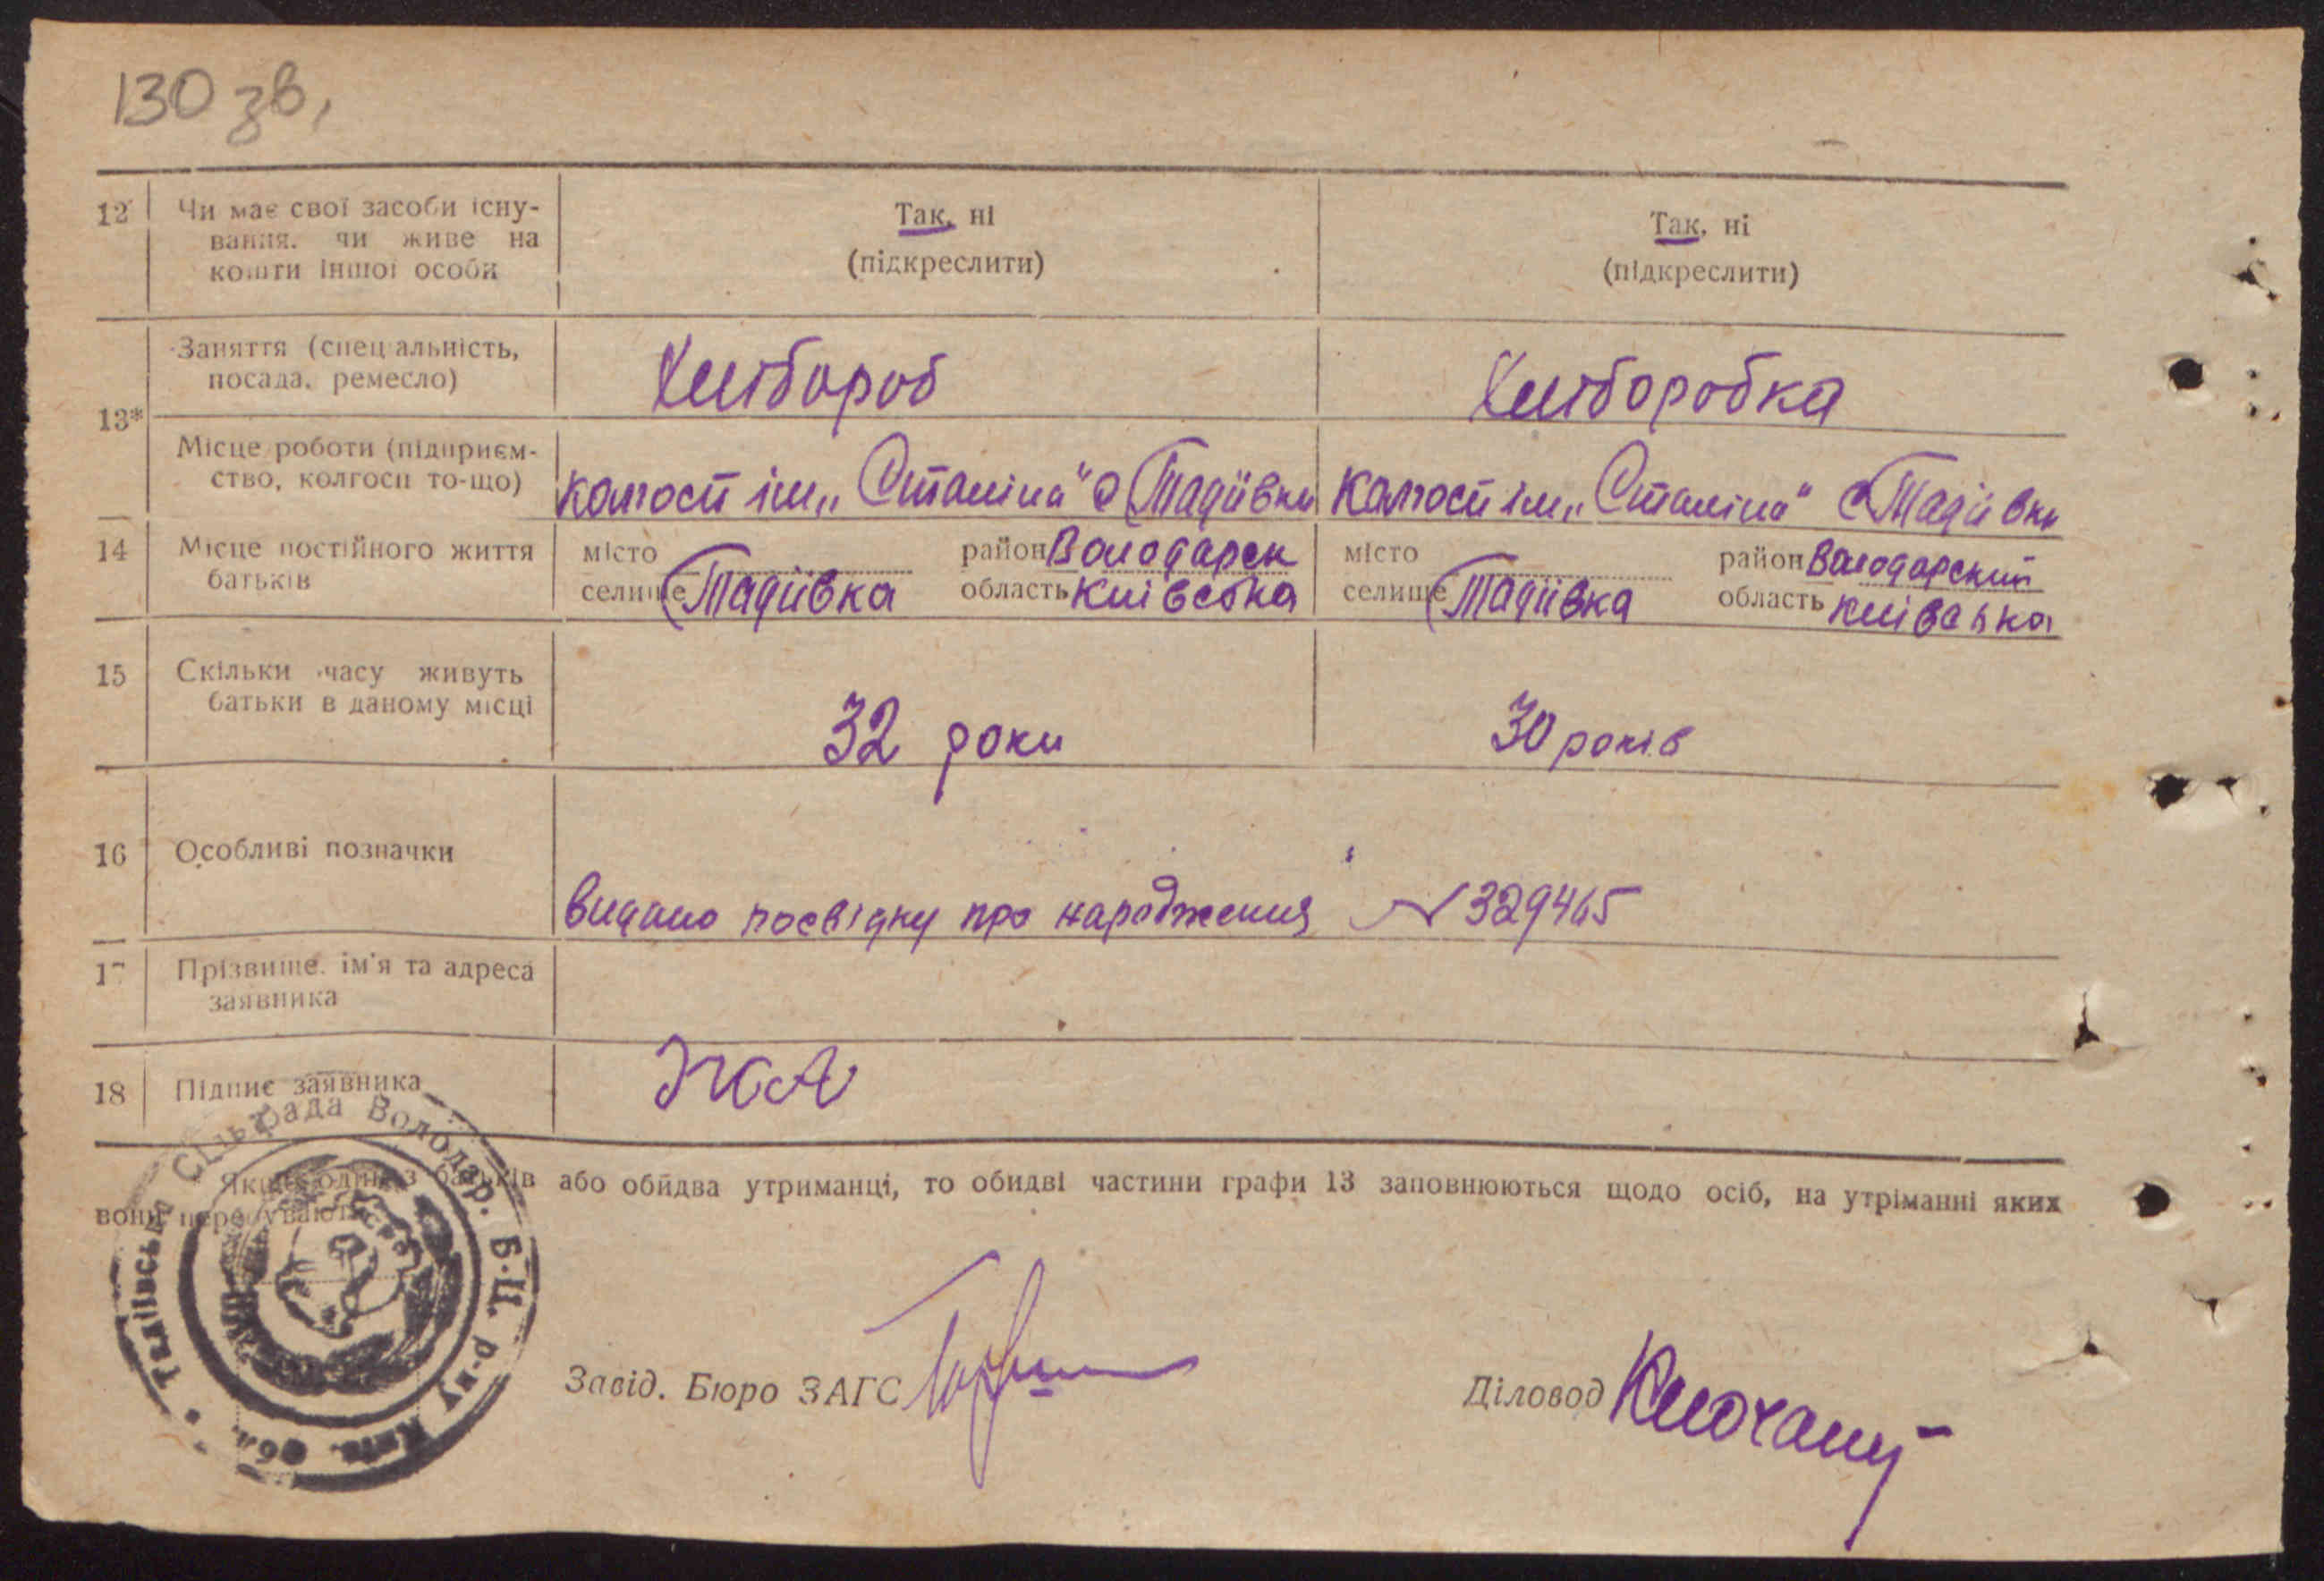 130 зв,
12 Чи має свої засоби існу-
вання, чи живе на
кошти іншої особи
Так, ні
(підкреслити)
Так, ні
(підкреслити)
13*
Заняття (спеціальність,
посада, ремесло)
Хлібороб
Хліборобка
Місце роботи (підприєм-
ство, колгосп то-що)
колгосп ім„ Сталіна" с Тадіївки
Колгосп ім„ Сталіна" с Тадіївки
14 Місце постійного життя
батьків
місто
район Володарськ
селище Тадіївка
область Київська
місто
район Володарський
селище Тадіївка
область Київська
15 Скільки часу живуть
батьки в даному місці
32 роки
30 років
16 Особливі позначки
видано посвідку про народження N 329465
17 Прізвище, ім'я та адреса
заявника
18 Підпис заявника
Якщо один з батьків або обидва утриманці, то обидві частини графи 13 заповнюються щодо осіб, на утріманні яких
вони перебувають
Сільрада Володар. Б-Ц. р-ну Київ. обл.
Завід. Бюро ЗАГС
Діловод